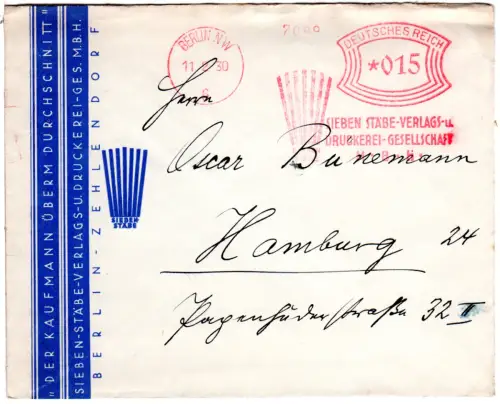 "DER KAUFMANN ÜBERM DURCHSCHNITT"
SIEBEN-STÄBE-VERLAGS-U. DRUCKEREI-GES. M.B.H.
BERLIN-ZEHLENDORF
SIEBEN
STÄBE
BERLIN NW
11 30
6
DEUTSCHES REICH
*015
SIEBEN STÄBE-VERLAGS-u.
DRUCKEREI-GESELLSCHAFT
Herrn
Oscar Bunemann
Hamburg 24
Papenhuderstraße 32 II